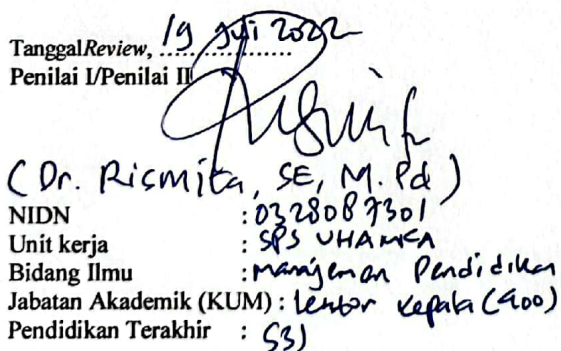 Tanggal Review, 19 Juli 2022
Penilai I/Penilai II
( Dr. Rismita, SE, M.Pd )
NIDN : 0328087301
Unit kerja : SPS UHAMKA
Bidang Ilmu : Manajemen Pendidikan
Jabatan Akademik (KUM) : Lektor Kepala (400)
Pendidikan Terakhir : S3)